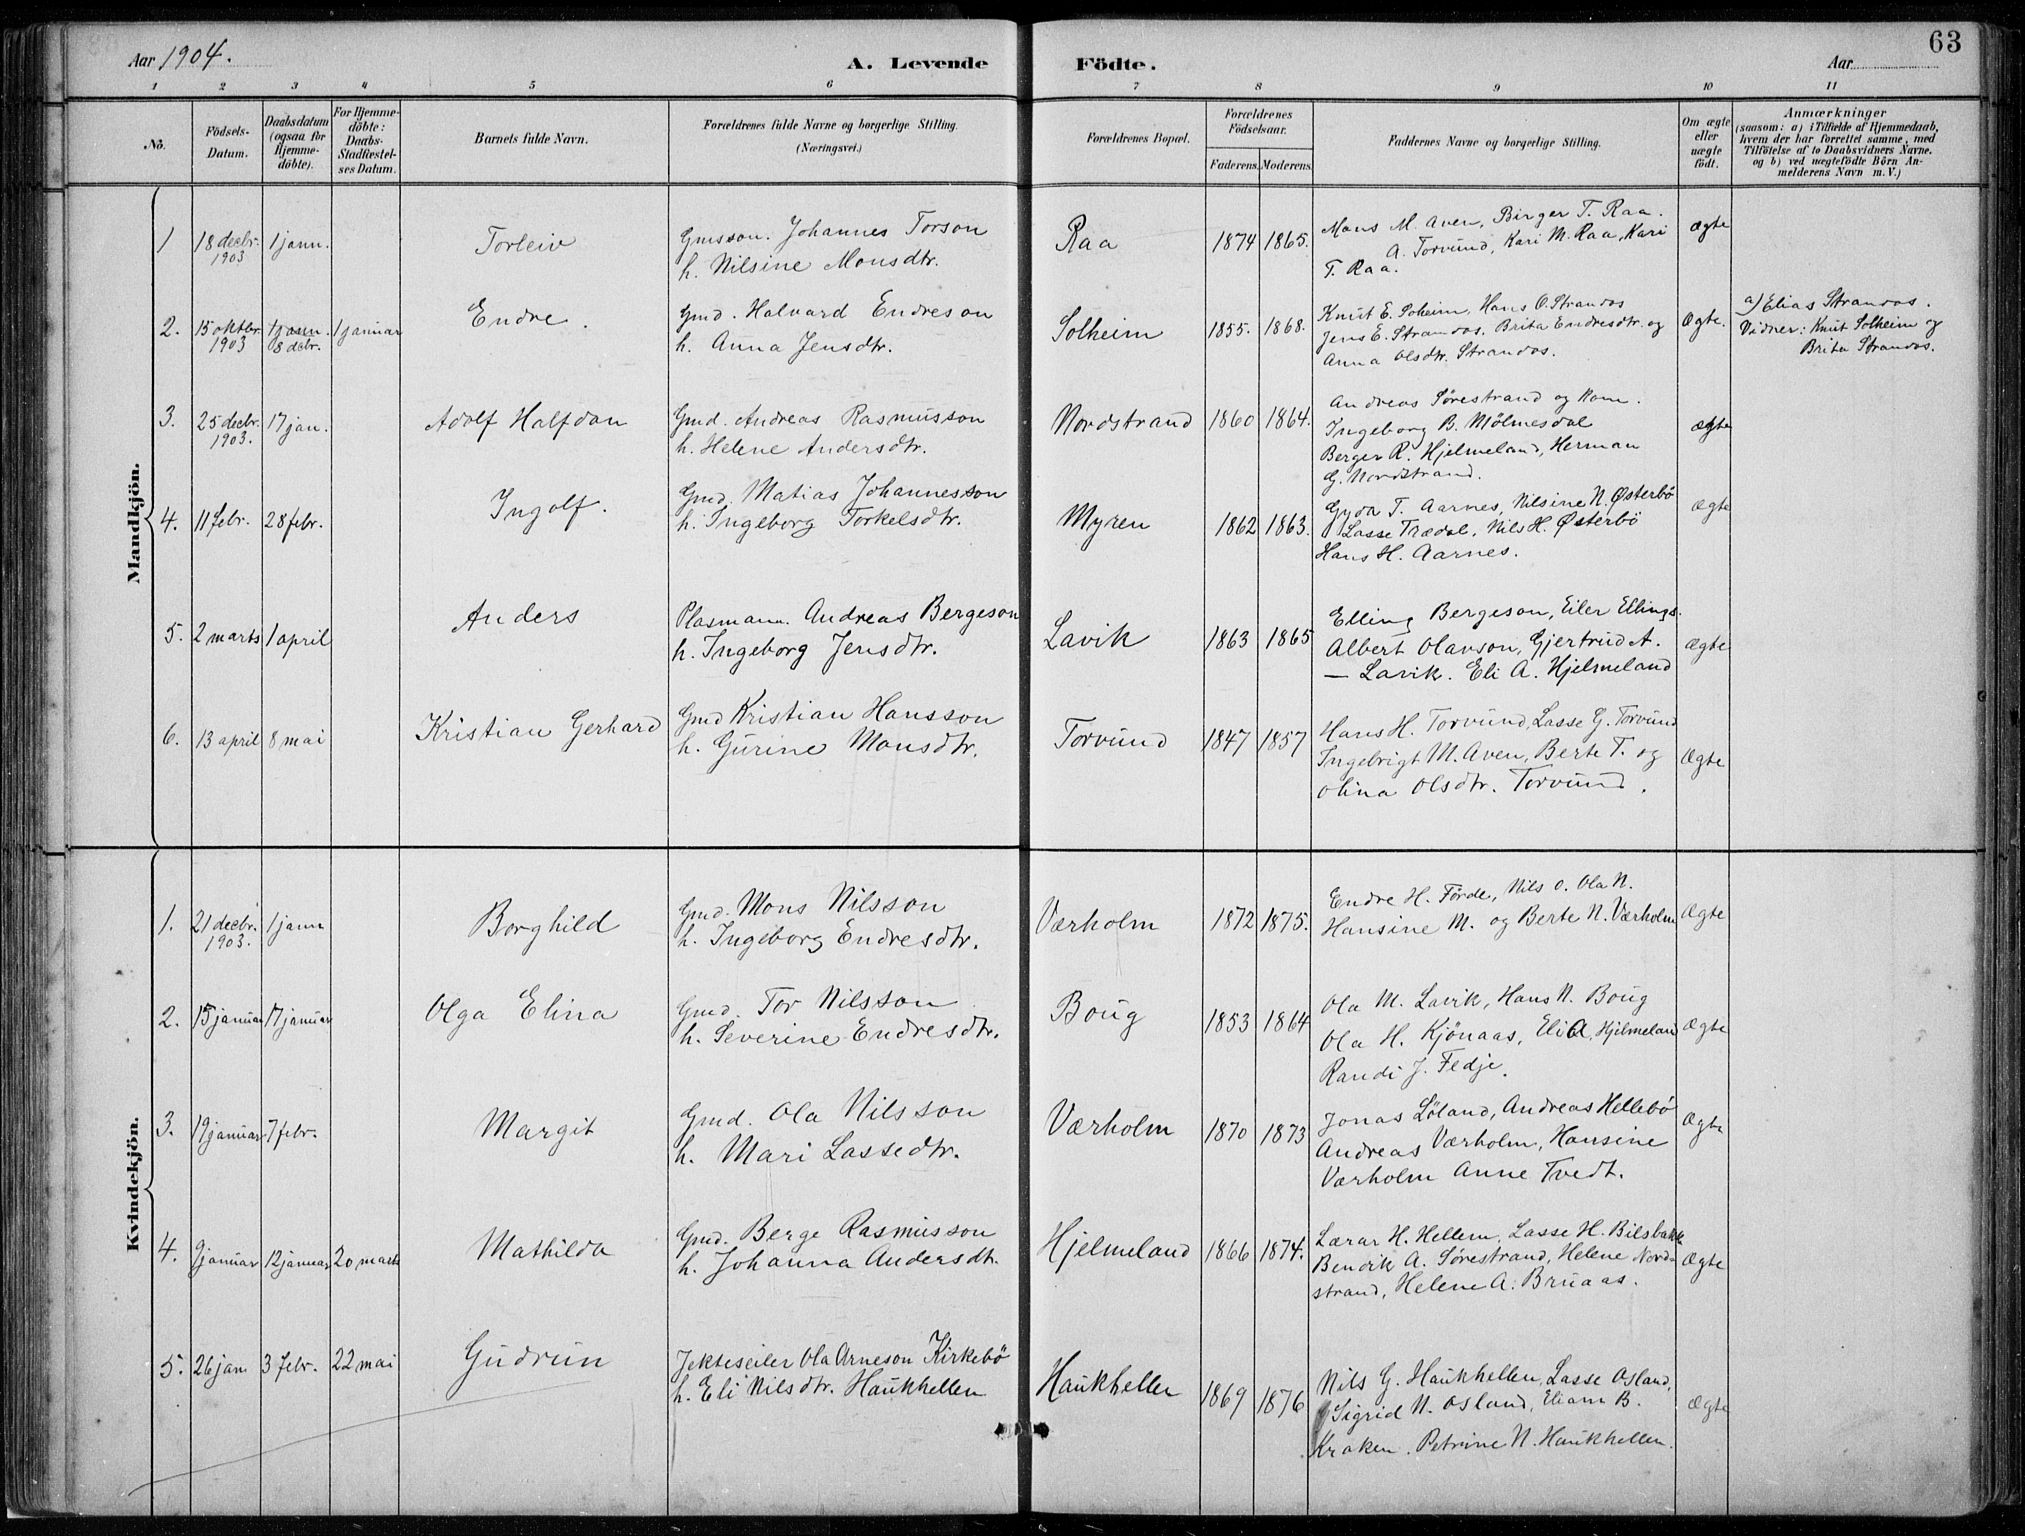 Aar 1904.
A. Levende Födte.
Aar
63
1 2 3 4 5 6 7 8 9 10 11
No.
Födsels-
Datum.
Daabsdatum
(ogsaa for
Hjemme-
döbte).
For Hjemme-
döbte:
Daabs-
Stadfæstel-
ses Datum.
Barnets fulde Navn.
Forældrenes fulde Navne og borgerlige Stilling.
(Næringsvei.)
Forældrenes Bopæl.
Forældrenes
Födselsaar.
Faderens. Moderens.
Faddernes Navne og borgerlige Stilling.
Om ægte
eller
uægte
födt.
Anmærkninger
(saasom: a) i Tilfælde af Hjemmedaab,
hvem der har forrettet samme, med
Tilföielse af to Daabsvidners Navne.
og b) ved uægtefödte Börn An-
melderens Navn m. V.)
Mandkjön.
1 18 decbr. 1903 1 jann. Torleiv
Gmsson. Johannes Torson
h. Nilsine Monsdtr.
Raa 1874 1865.
Mons M. Aven, Birger T. Raa.
A. Torvund, Kari M. Raa, Kari
T. Raa.
ægte
2. 15 oktbr. 1903 1 jann. 8 decbr. 1 januar Endre.
Gmd. Halvard Endreson
h. Anna Jensdtr.
Solheim 1855. 1868.
Knut E. Soheim, Hans O. Strandos
Jens E. Strandos. Brita Endresdtr. og
Anna Olsdtr. Strandos.
Ægte.
a) Elias Strandos.
Vidner: Knut Solheim og
Brita Strandos.
3. 25 decbr. 1903. 17 jan. Adolf Halfdan
Gmd. Andreas Rasmusson
h. Helene Andersdtr.
Nordstrand 1860 1864.
Andreas Sørestrand og Kone.
Ingeborg B. Mølmesdal
Berger R. Hjelmeland, Herman
G. Nordstrand.
ægte
4. 11 febr. 28 febr. Ingolf.
Gmd. Matias Johannesson
h. Ingeborg Torkelsdtr.
Myren 1862 1863.
Gyda T. Aarnes, Nilsine N. Østerbö
Lasse Trædal, Nils H. Østerbö
Hans H. Aarnes.
Ægte
5. 2 marts 1 april Anders
Plasmann. Andreas Bergeson
h. Ingeborg Jensdtr.
Lavik 1863 1865
Elling Bergeson, Eiler Ellings.
Albert Olavson, Gjertrud A.
— Lavik. Eli A. Hjelmeland
Ægte
6. 13 april 8 mai Kristian Gerhard
Gmd Kristian Hansson
h. Gurine Monsdtr.
Torvund 1847 1857
Hans H. Torvund, Lasse G. Torvund
Ingebrigt M. Aven, Berte T. og
Olina Olsdtr. Torvund.
Ægte
Kvindekjön.
1. 21 decbr. 1903. 1 jann Borghild
Gmd. Mons Nilsson
h. Ingeborg Endresdtr.
Værholm 1872 1875.
Endre H. Förde, Nils O. Ola N.
Hansine M. og Berte N. Værholm
Ægte
2. 15 januar 17 januar Olga Elina
Gmd. Tor Nilsson
h. Severine Endresdtr.
Boug 1853 1864
Ola M. Lavik, Hans N. Boug
Ola H. Kjönaas, Eli A. Hjelmeland
Randi J. Fedje.
Ægte
3. 19 januar 7 febr. Margit
Gmd. Ola Nilsson
h. Mari Lassedtr.
Værholm 1870 1873
Jonas Löland, Andreas Hellebö
Andreas Værholm, Hansine
Værholm Anne Tvedt.
Ægte
4. 9 januar 12 januar 20 marts Mathilda
Gmd. Berge Rasmusson
h. Johanna Andersdtr.
Hjelmeland 1866 1874.
Lærar H. Hellem, Lasse H. Bilsbakk
Bendik A. Sørestrand, Helene Nord-
strand, Helene A. Bruaas.
Ægte
5. 26 jan 3 febr. 22 mai Gudrun
Jekteseiler Ola Arneson Kirkebö
h. Eli Nilsdtr. Haukhellen
Haukhellen 1869 1876
Nils G. Haukhellen, Lasse Osland,
Sigrid N. Osland, B.
Kraken. Petrine N. Haukhellen.
Ægte